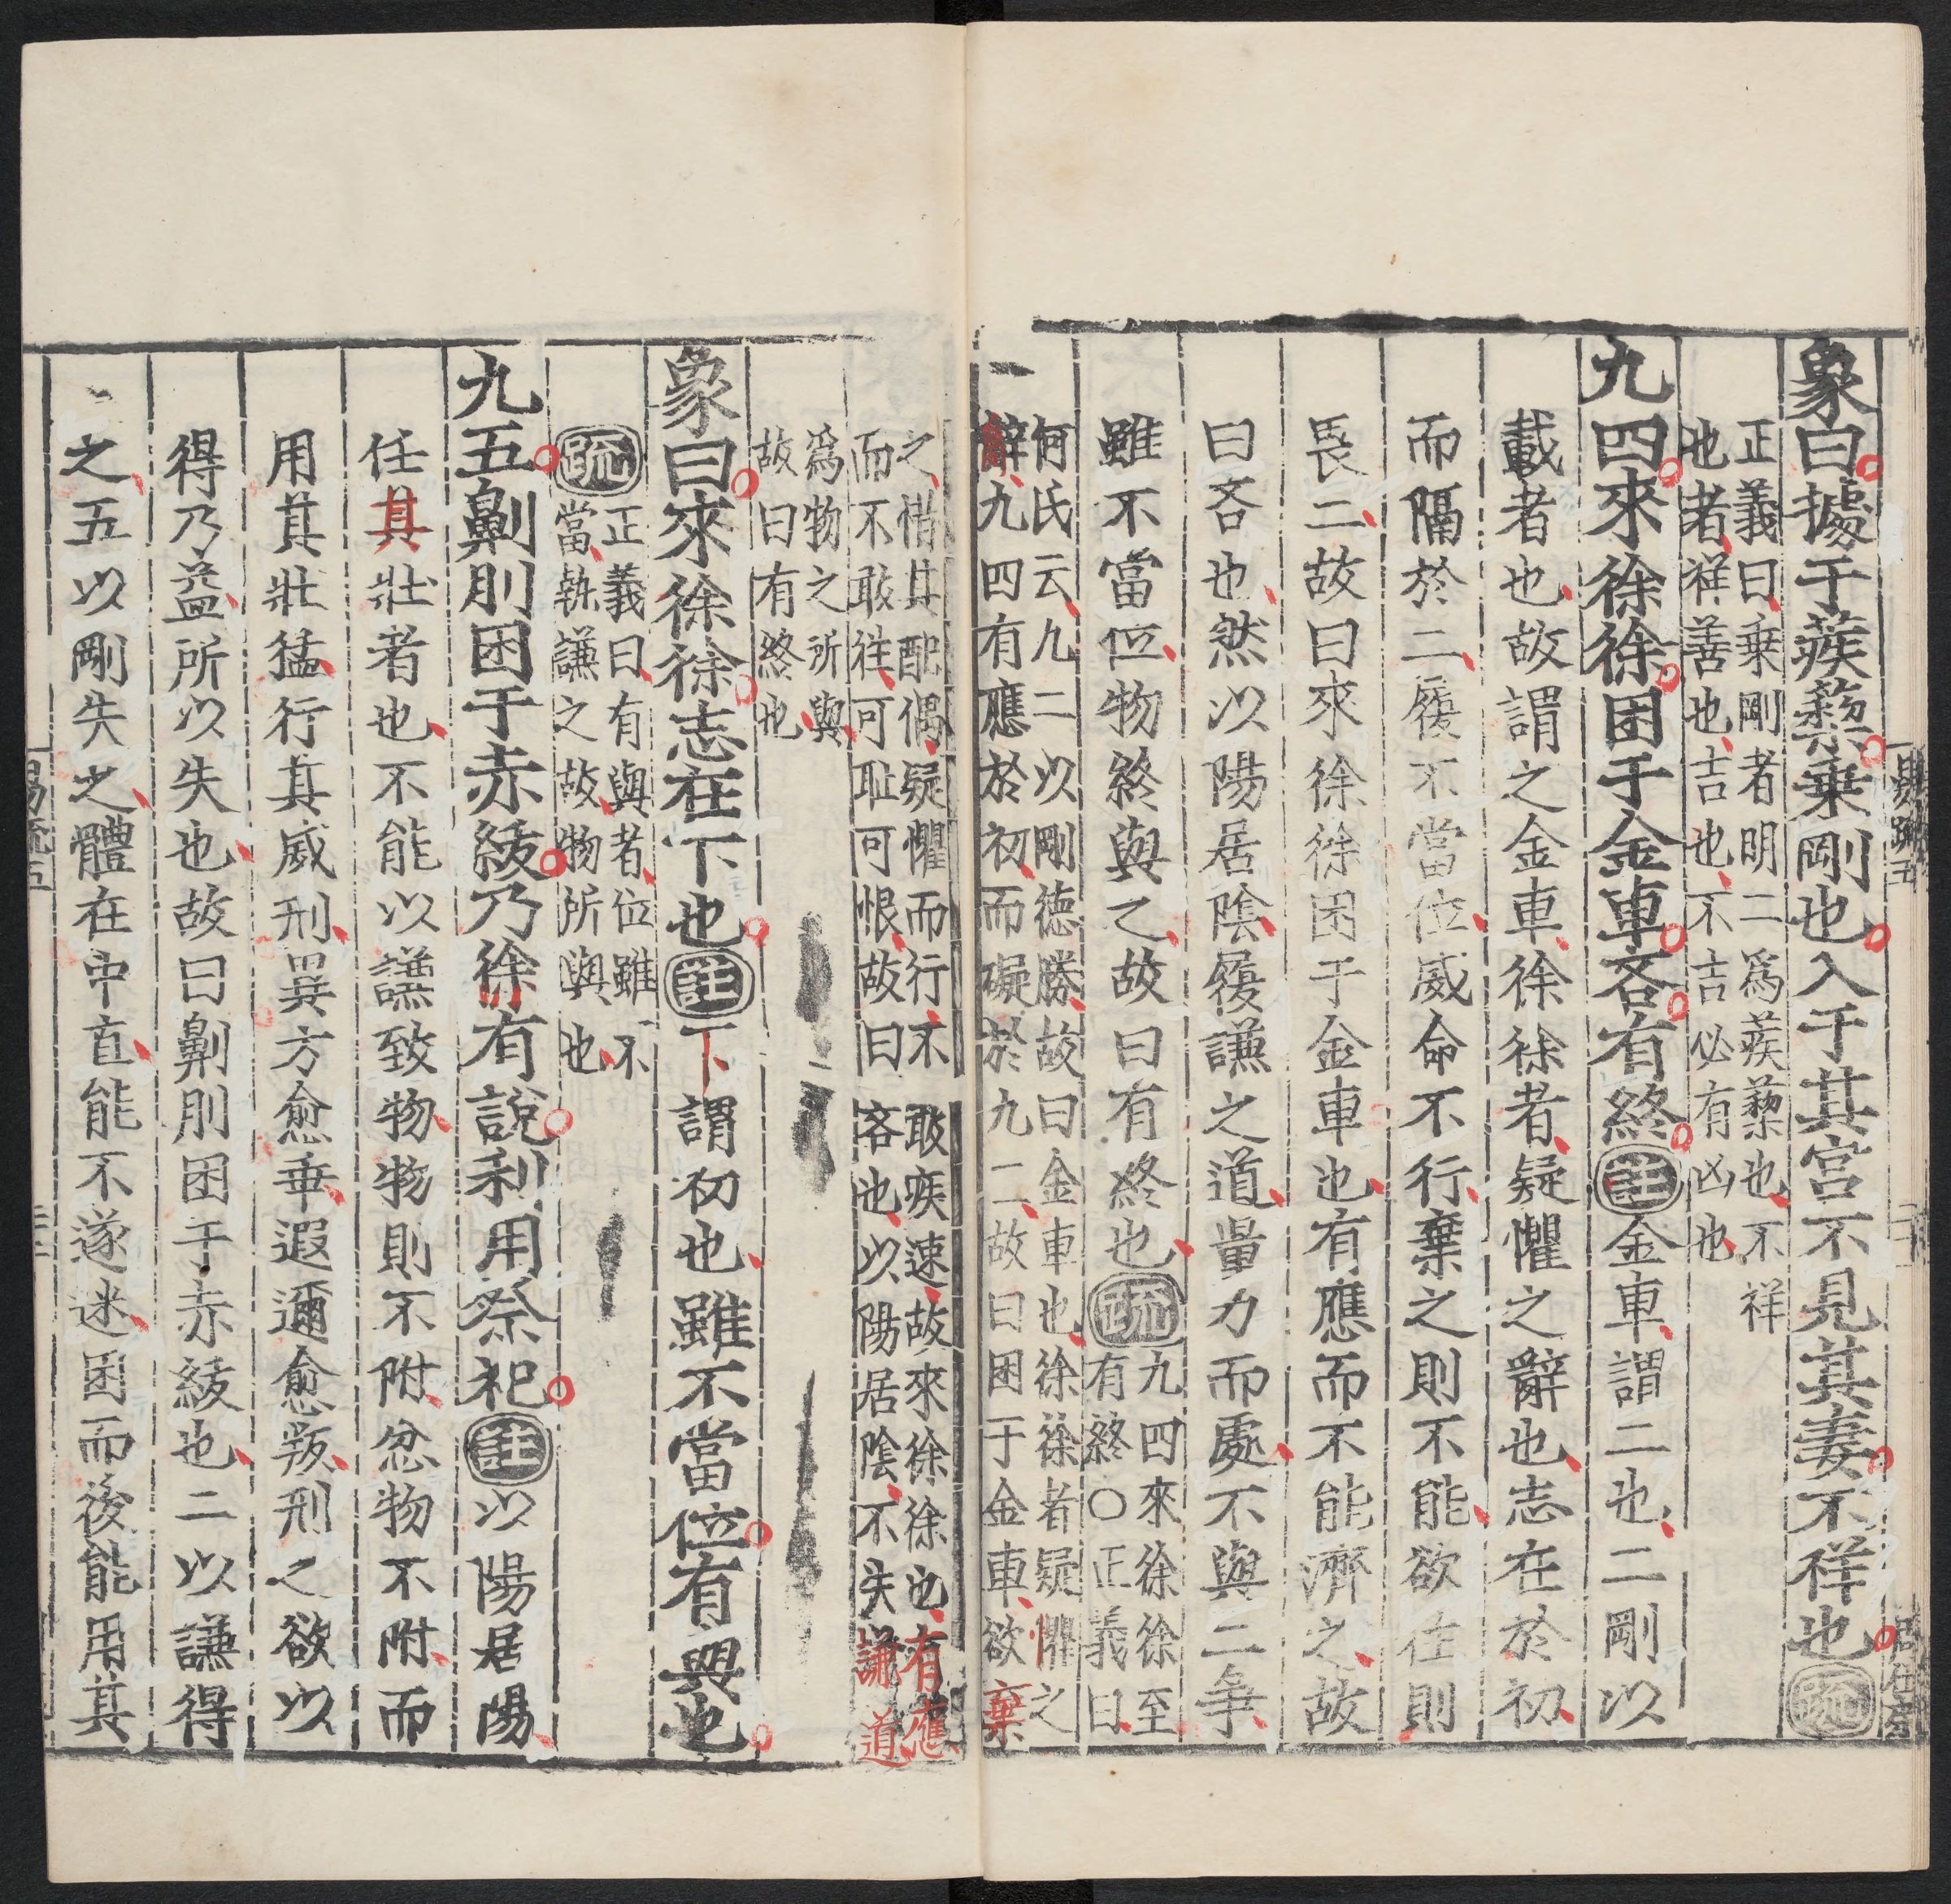 象曰據于蒺蔾乗剛也入于其宮不見其妻不祥也疏
正義曰乗剛者明二為蒺蔾也不祥
也者祥善也吉也不吉必有凶也
九四來徐徐困于金車吝有終註金車謂二也二剛以
載者也故謂之金車徐徐者疑懼之辭也志在於初
而隔於二履不當位威命不行棄之則不能欲往則
畏二故曰來徐徐困于金車也有應而不能濟之故
曰吝也然以陽居陰履謙之道量力而處不與二爭
雖不當位物終與之故曰有終也疏
九四來徐徐至
有終○正義曰
何氏云九二以剛德勝故曰金車也徐徐者疑懼之
辭九四有應於初而礙於九二故曰困于金車欲棄
之惜其配偶疑懼而行不敢疾速故來徐徐也有應
而不敢往可耻可恨故曰吝也以陽居陰不失謙道
為物之所與
故曰有終也
象曰來徐徐志在下也註下謂初也雖不當位有與也
疏
正義曰有與者位雖不
當執謙之故物所與也
九五劓刖困于赤紱乃徐有說利用祭祀註以陽居陽
任其壯者也不能以謙致物物則不附忽物不附而
用其壯猛行其威刑異方愈乖遐邇愈叛刑之欲以
得乃益所以失也故曰劓刖困于赤紱也二以謙得
之五以剛失之體在中直能不遂迷困而後能用其
易疏五